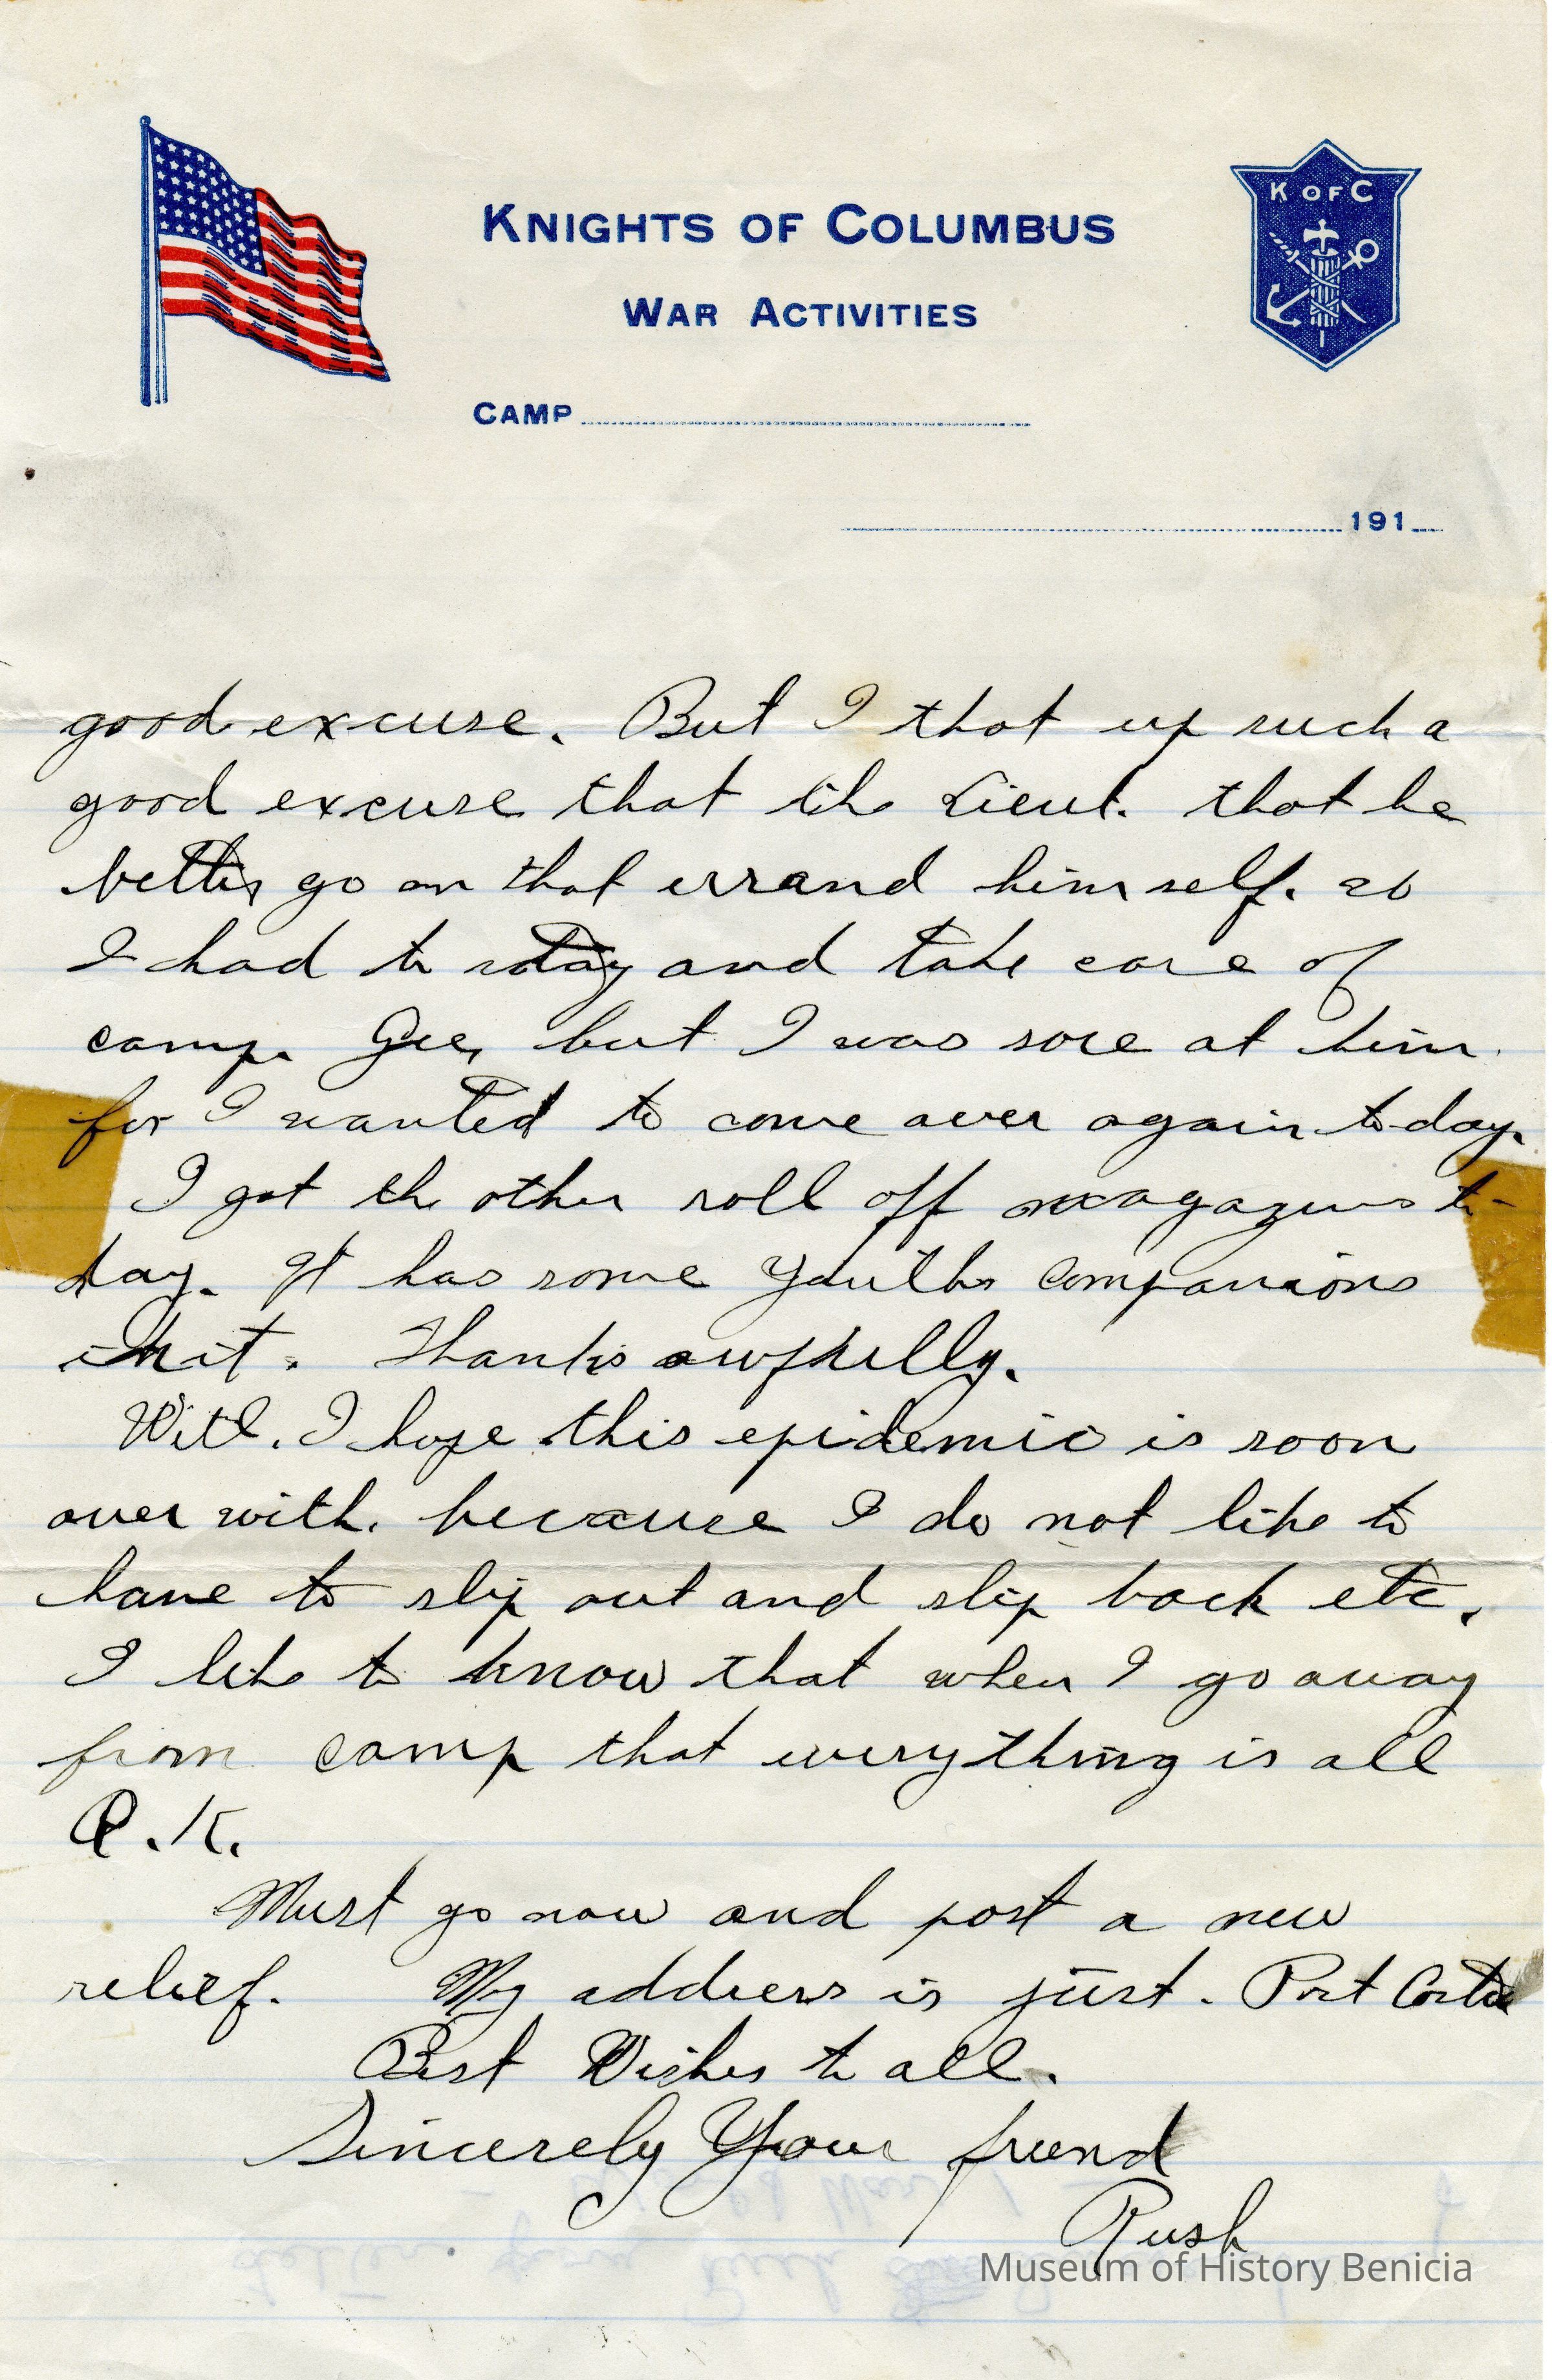 K OF C
KNIGHTS OF COLUMBUS
WAR ACTIVITIES
CAMP
191
good excuse. But I thot up such a
good excuse that the Lieut. thot he
better go on that errand himself. so
I had to stay and take care of
camp. Gee, but I was sore at him.
for I wanted to come over again to-day.
I got the other roll off magazines to-
day. It has some Youths Companions
in it. Thanks awfully.
Well. I hope this epidemic is soon
over with. because I do not like to
have to slip out and slip back etc.
I like to know that when I go away
from camp that everything is all
O.K.
Must go now and post a new
relief. My address is just. Port Costa
Best Wishes to all.
Sincerely Your friend
Rush
Museum of History Benicia